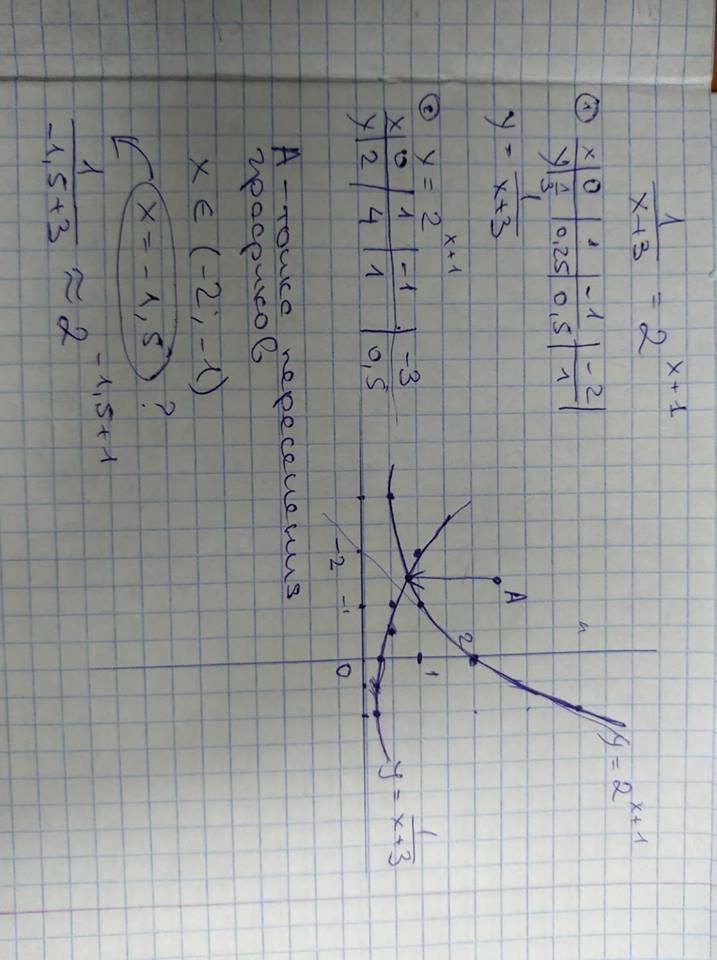 1/(x+3) = 2^(x+1)
① x | 0 | 1 | -1 | -2
y | 1/3 | 0,25 | 0,5 | 1
y = 1/(x+3)
② y = 2^(x+1)
x | 0 | 1 | -1 | -3
y | 2 | 4 | 1 | 0,5
A - точка пересечения
графиков
x ∈ (-2; -1)
x = -1,5 ?
1/(-1,5+3) ≈ 2^(-1,5+1)
A
2
1
-2
-1
0
y = 2^(x+1)
y = 1/(x+3)